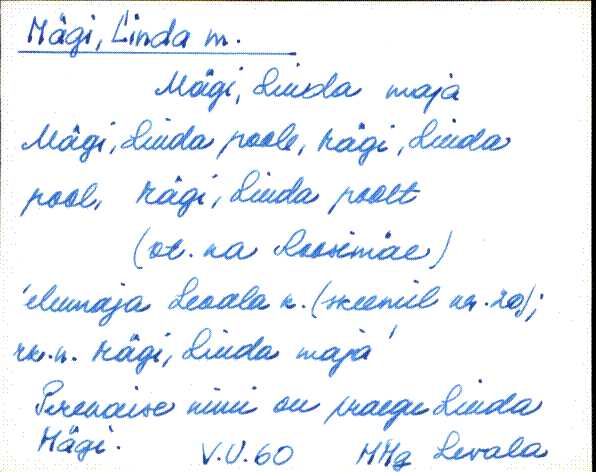 Mägi, Linda m.
Mägi, Linda maja
Mägi, Linda poole, Mägi, Linda
pool, Mägi, Linda poolt
(ot. ka Roosimäe)
'elumaja Levala k. (skeemil nr. 20);
rk.n. Mägi, Linda maja'
Perenaise nimi on praegu Linda
Mägi.
V.U.60 MMg Levala